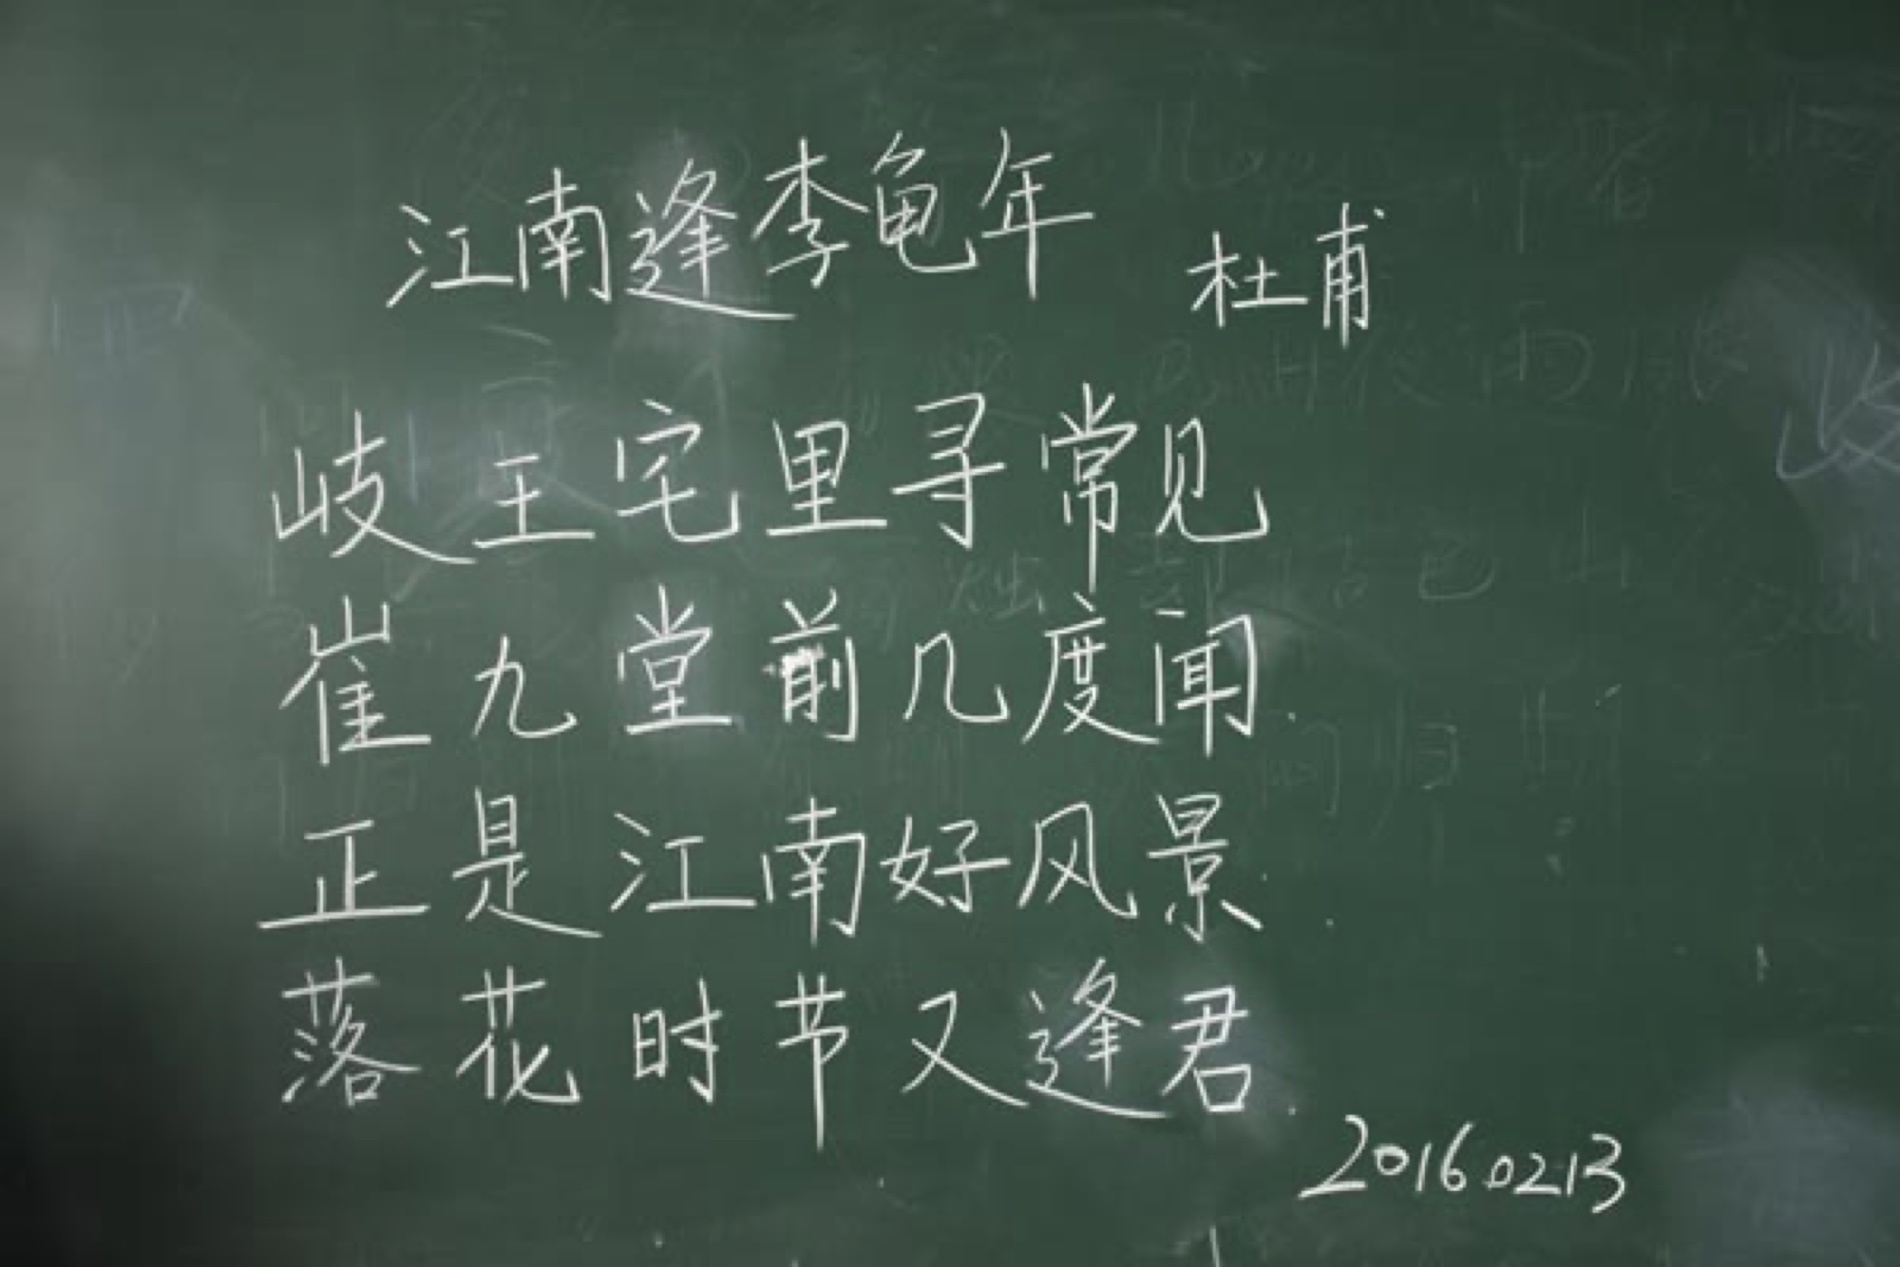 江南逢李龟年 杜甫
岐王宅里寻常见
崔九堂前几度闻
正是江南好风景
落花时节又逢君
2016.02.13